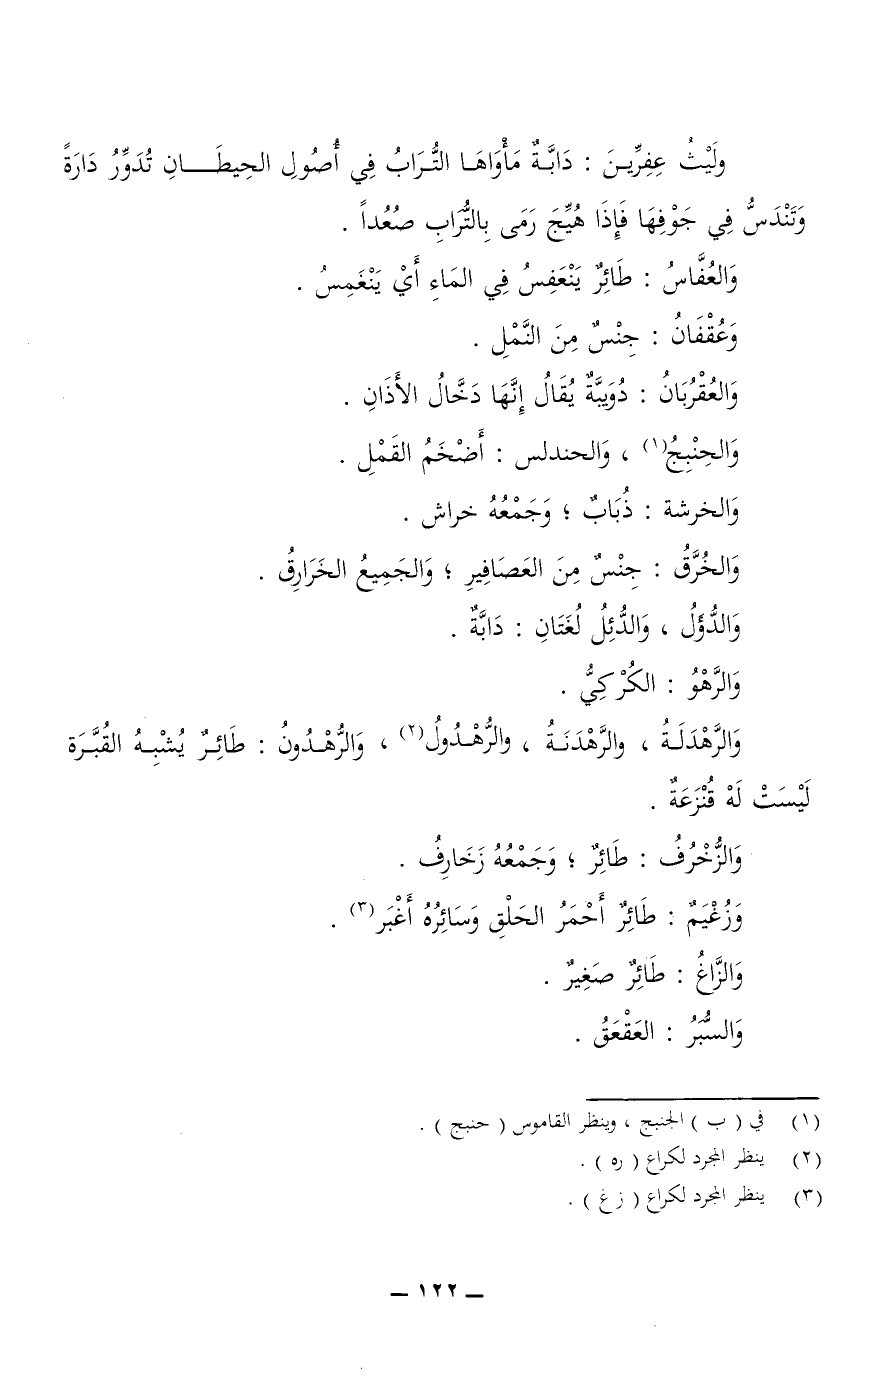 ولَيْثُ عِفِرِّينَ : دَابَّةٌ مَأْوَاهَا التُّرَابُ فِي أُصُولِ الحِيطَانِ تُدَوِّرُ دَارَةً
وَتَنْدَسُّ فِي جَوْفِهَا فَإِذَا هُيِّجَ رَمَى بِالتُّرَابِ صُعُداً .
وَالعُفَّاسُ : طَائِرٌ يَنْعَفِسُ فِي المَاءِ أَيْ يَنْغَمِسُ .
وَعُقْفَانُ : جِنْسٌ مِنَ النَّمْلِ .
وَالعُقْرُبَانُ : دُوَيبَّةٌ يُقَالُ إِنَّهَا دَخَّالُ الأَذَانِ .
وَالحِنْبِجُ(١) ، وَالحندلس : أَضْخَمُ القَمْلِ .
وَالخرشة : ذُبَابٌ ؛ وَجَمْعُهُ خراش .
وَالخُرَّقُ : جِنْسٌ مِنَ العَصَافِيرِ ؛ وَالجَمِيعُ الخَرَارِقُ .
وَالدُّؤَلُ ، وَالدُّئِلُ لُغَتَانِ : دَابَّةٌ .
وَالرَّهْوُ : الكُرْكِيُّ .
وَالرَّهْدَلَةُ ، والرَّهْدَنَةُ ، والرُّهْدُولُ(٢) ، وَالرُّهْدُونُ : طَائِرٌ يُشْبِهُ القُبَّرَة
لَيْسَتْ لَهْ قُنْزَعَةٌ .
وَالزُّخْرُفُ : طَائِرٌ ؛ وَجَمْعُهُ زَخَارِفُ .
وَزُغْيَمٌ : طَائِرٌ أَحْمَرُ الحَلْقِ وَسَائِرُهُ أَغْبَر(٣) .
وَالزَّاغُ : طَائِرٌ صَغِيرٌ .
وَالسُّبَرُ : العَقْعَقُ .
(١) في ( ب ) الجنبج ، وينظر القاموس ( حنبج ) .
(٢) ينظر المجرد لكراع ( ره ) .
(٣) ينظر المجرد لكراع ( زغ ) .
ـ ١٢٢ ـ